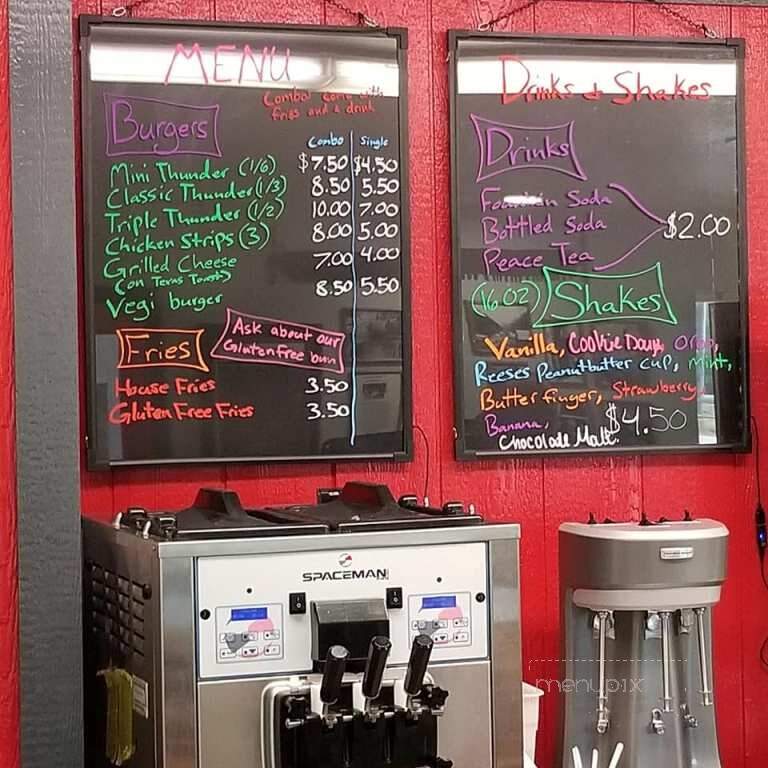 MENU
Combos come with
fries and a drink
Burgers
Combo Single
Mini Thunder (1/6) $7.50 $4.50
Classic Thunder (1/3) 8.50 5.50
Triple Thunder (1/2) 10.00 7.00
Chicken Strips (3) 8.00 5.00
Grilled Cheese 7.00 4.00
(on Texas Toast)
Vegi burger 8.50 5.50
Fries
Ask about our
Gluten free bun
House Fries 3.50
Gluten Free Fries 3.50
Drinks & Shakes
Drinks
Fountain Soda
Bottled Soda $2.00
Peace Tea
(16 oz) Shakes
Vanilla, Cookie Dough, Oreo,
Reeses Peanutbutter cup, mint,
Butter finger, Strawberry
Banana, $4.50
Chocolate Malt.
SPACEMAN
menupix